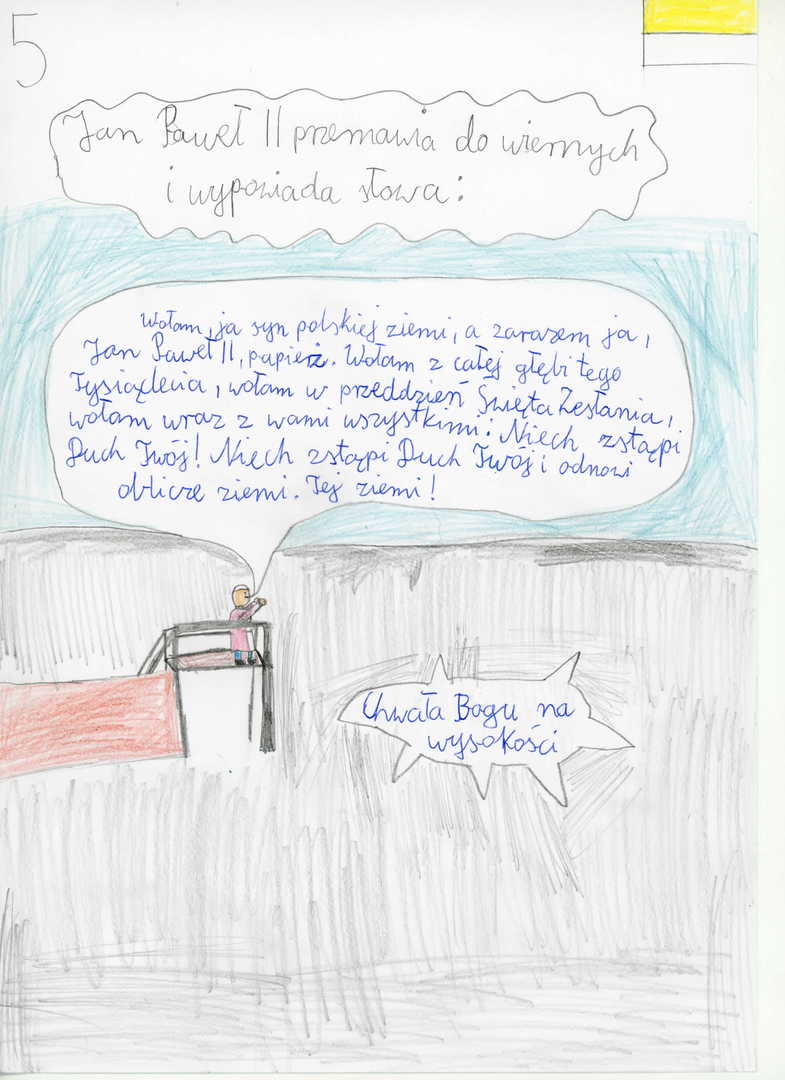 5
Jan Paweł II przemawia do wiernych
i wypowiada słowa:
Wołam, ja syn polskiej ziemi, a zarazem ja,
Jan Paweł II, papież. Wołam z całej głębi tego
Tysiąclecia, wołam w przeddzień Święta Zesłania,
wołam wraz z wami wszystkimi: Niech zstąpi
Duch Twój! Niech zstąpi Duch Twój i odnowi
oblicze ziemi. Tej ziemi!
Chwała Bogu na
wysokości